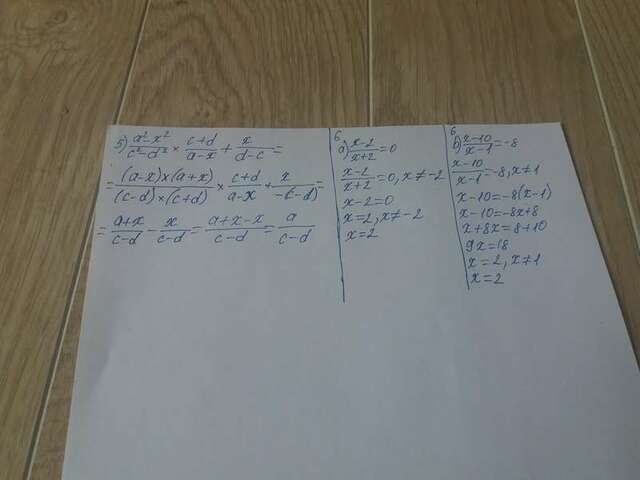 5) (a²-x²)/(c²-d²) × (c+d)/(a-x) + x/(d-c) =
= ((a-x)×(a+x))/((c-d)×(c+d)) × (c+d)/(a-x) + x/(-(c-d)) =
= (a+x)/(c-d) - x/(c-d) = (a+x-x)/(c-d) = a/(c-d)
6
a) (x-2)/(x+2) = 0
(x-2)/(x+2) = 0, x≠-2
x-2=0
x=2, x≠-2
x=2
6
b) (x-10)/(x-1) = -8
(x-10)/(x-1) = -8, x≠1
x-10=-8(x-1)
x-10=-8x+8
x+8x=8+10
9x=18
x=2, x≠1
x=2